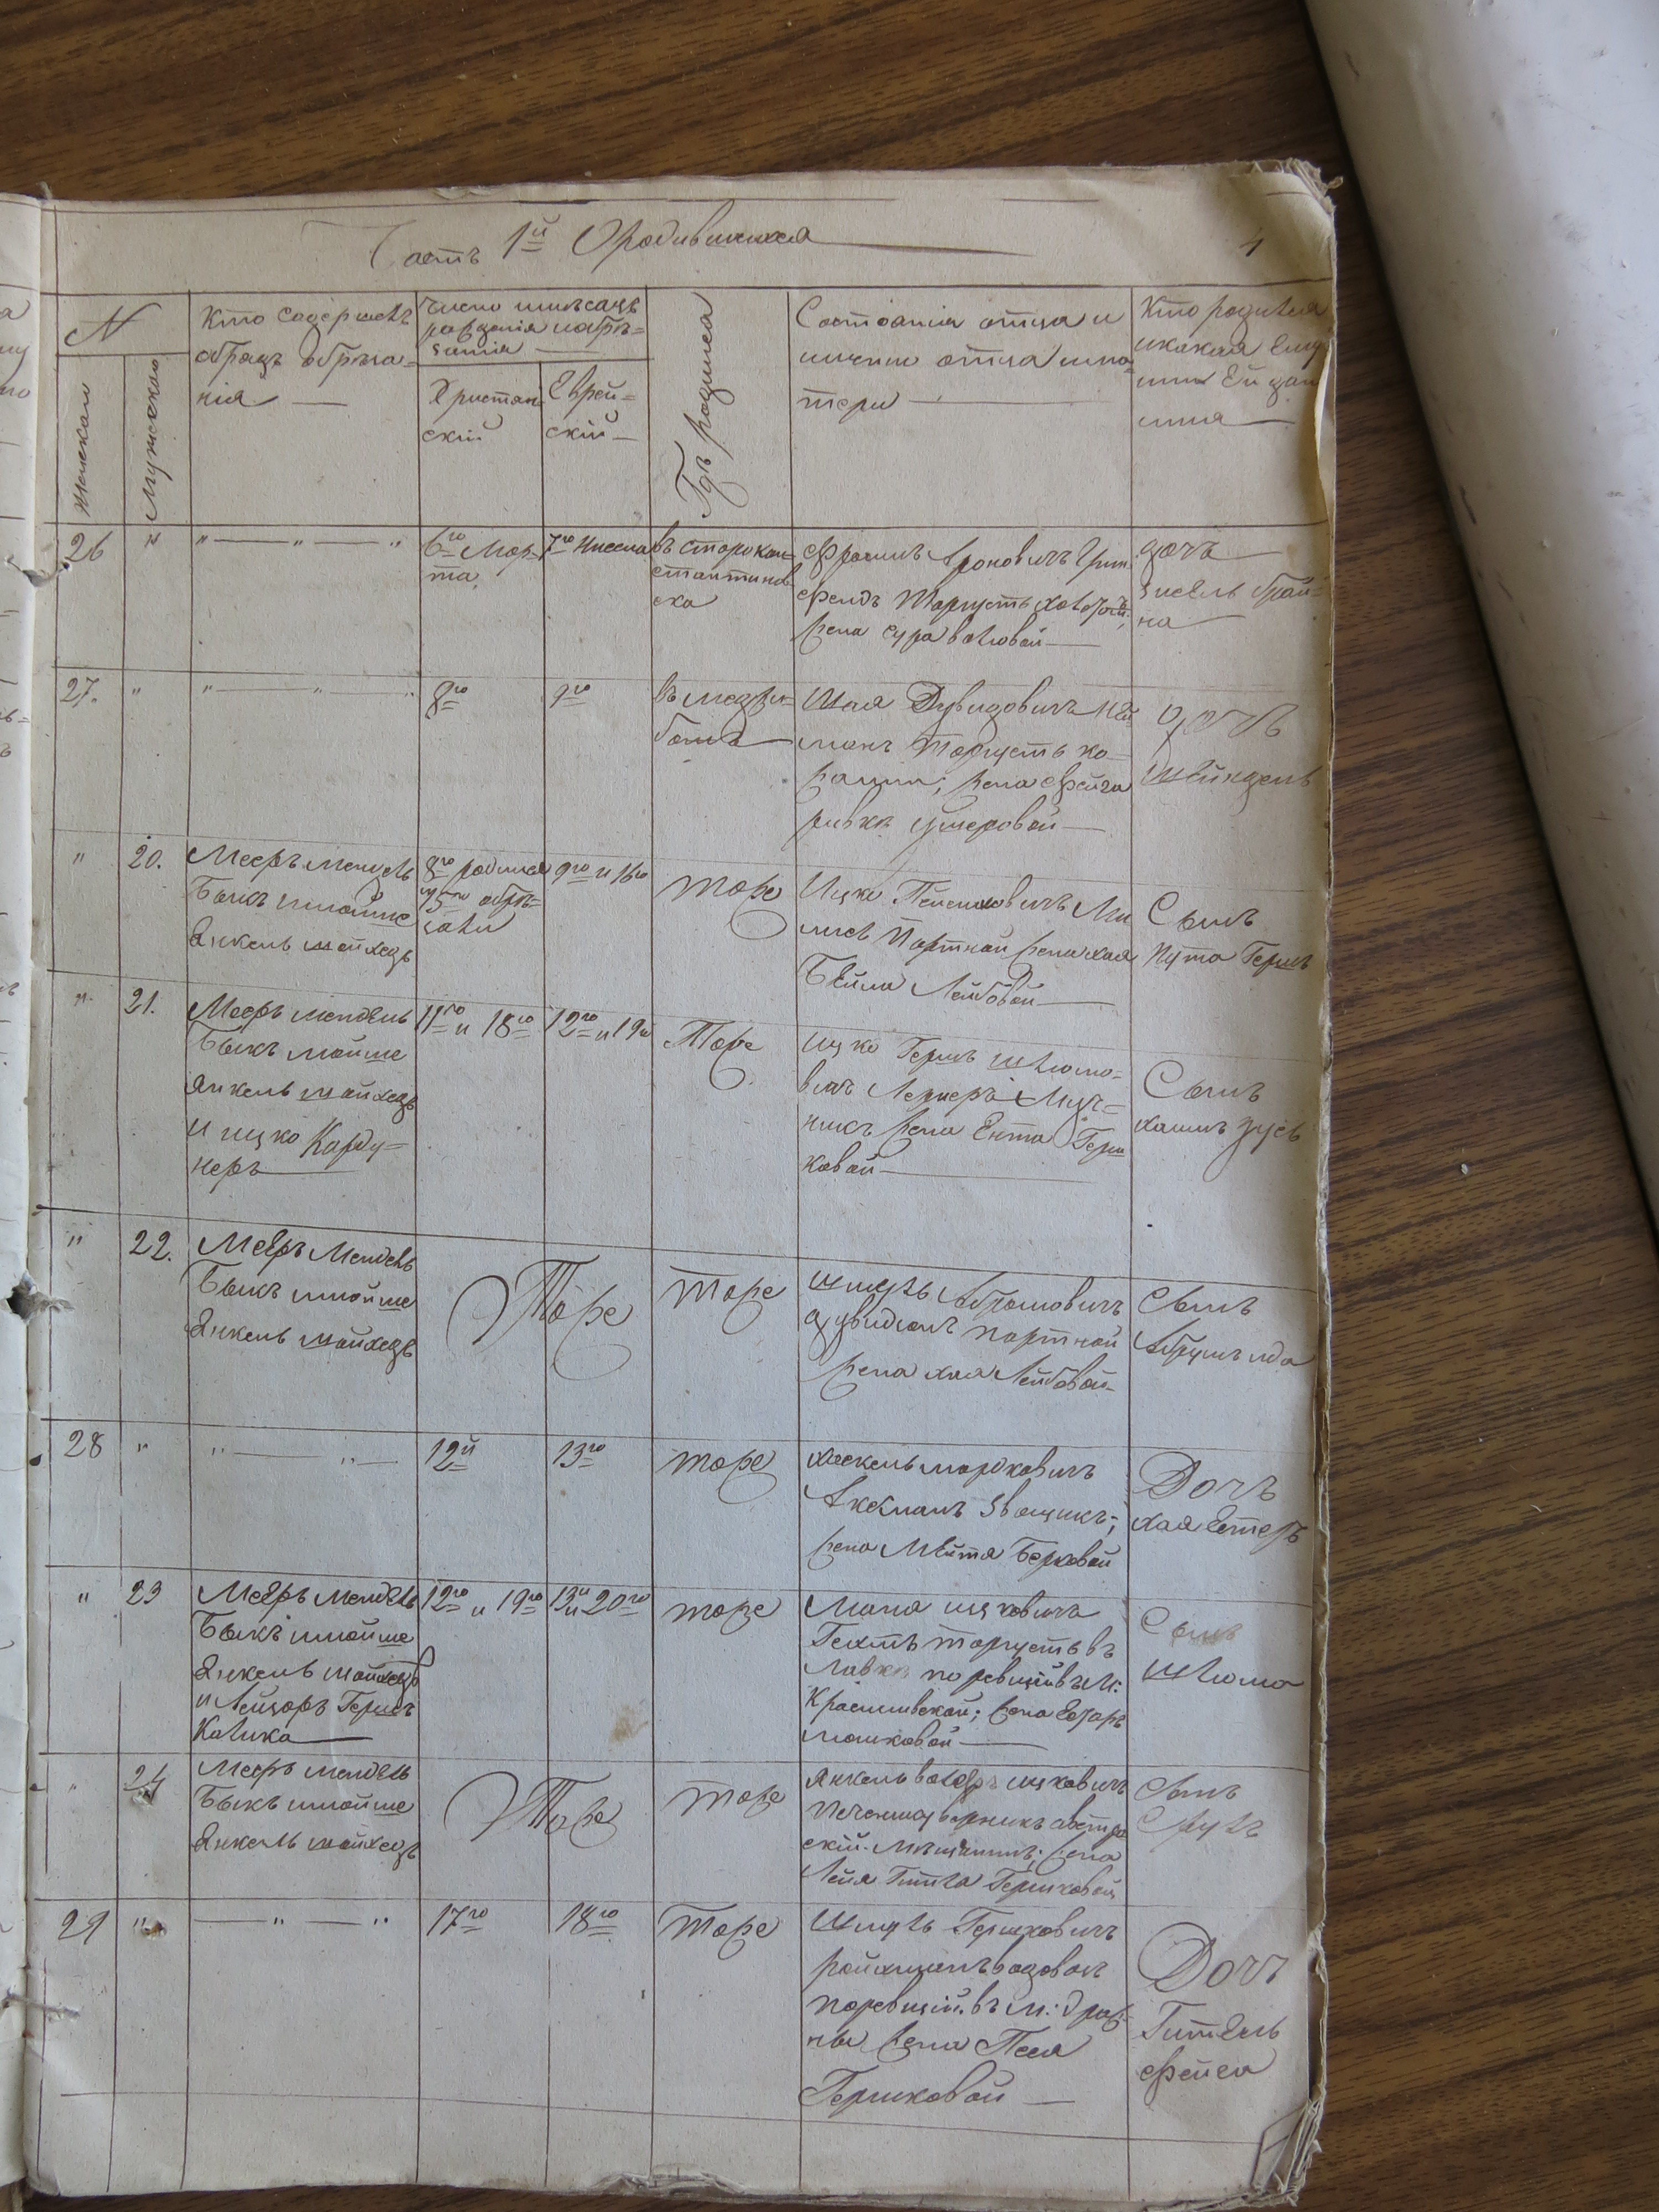 Часть 1й О родившихся
4
№
Женскаго
Мужескаго
Кто совершалъ
обрядъ обреза=
нія
Число и месяцъ
рожденія и обре=
занія
Христіан
скій
Еврей=
скій
Где родился
Состояніе отца и
имена отца и ма=
тери
Кто родился
и какая Ему
или Ей дан
имя
26 " " — " — "
6го Мар=
та
7го Ниссана
въ Старокон=
стантинов
ска
Фроимъ Ароновичъ Грин
фельдъ Торгуетъ
жена Сура Волковой
дочь
Зисель Брай=
на
27. " " — " — "
8го
9го
въ Межи=
боже
Шая Дувидовичъ Ней
манъ Торгуетъ ко=
жами; жена Фейга
ривка Ушеровой
дочь
Шейндель
" 20.
Мееръ Мендель
Быкъ и мойше
Янкель Шойхедъ
8го родился
15го обре=
зали
9го и 16го
тоже
Ицко Пейсиховичъ
Портной жена хая
Бейла Лейбовой
Сынъ
Нута Гершъ
" 21.
Мееръ Мендель
Быкъ мойше
Янкель Шойхедъ
и ицко Карду=
неръ
11го и 18го
12го и 19го
Тоже
Ицко Гершъ Шлiомо=
вичъ Лернеръ Муч=
никъ жена Ента Герш
ковой
Сынъ
хаимъ Зусь
" 22.
Мееръ Мендель
Быкъ и мойше
Янкель Шойхедъ
Тоже
тоже
Шмуль Абрамовичъ
Дувидзонъ портной
жена хая Лейбовой
Сынъ
Абрумъ ида
28 " " — " —
12й
13го
тоже
Хаскель мордковичъ
Аксманъ Звощикъ;
жена Мейтя Берковой
Дочь
хая Естеръ
" 23
Мееръ Мендель
Быкъ и мойше
Янкель Шойхедъ
и Лейзоръ Гершъ
Колика
12го и 19го
13 и 20го
тоже
Маня ицковичъ
Гехтъ торгуетъ въ
Лавке по ревизіи въ м:
Красиловской; жена Естеръ
мошковой
Сынъ
Шлiома
" 24
Мееръ Мендель
Быкъ и мойше
Янкель Шойхедъ
Тоже
тоже
Янкель Волфъ ицковичъ
австрі
скій мещанинъ; жена
Лея Гитля Гершковой
Сынъ
Сруль
29 " — " — "
17го
18го
Тоже
Шмуль Гершковичъ
Ройхманъ
по ревизіи въ м:
ны жена Песя
Гершковой
Дочь
Гитель
Фейга